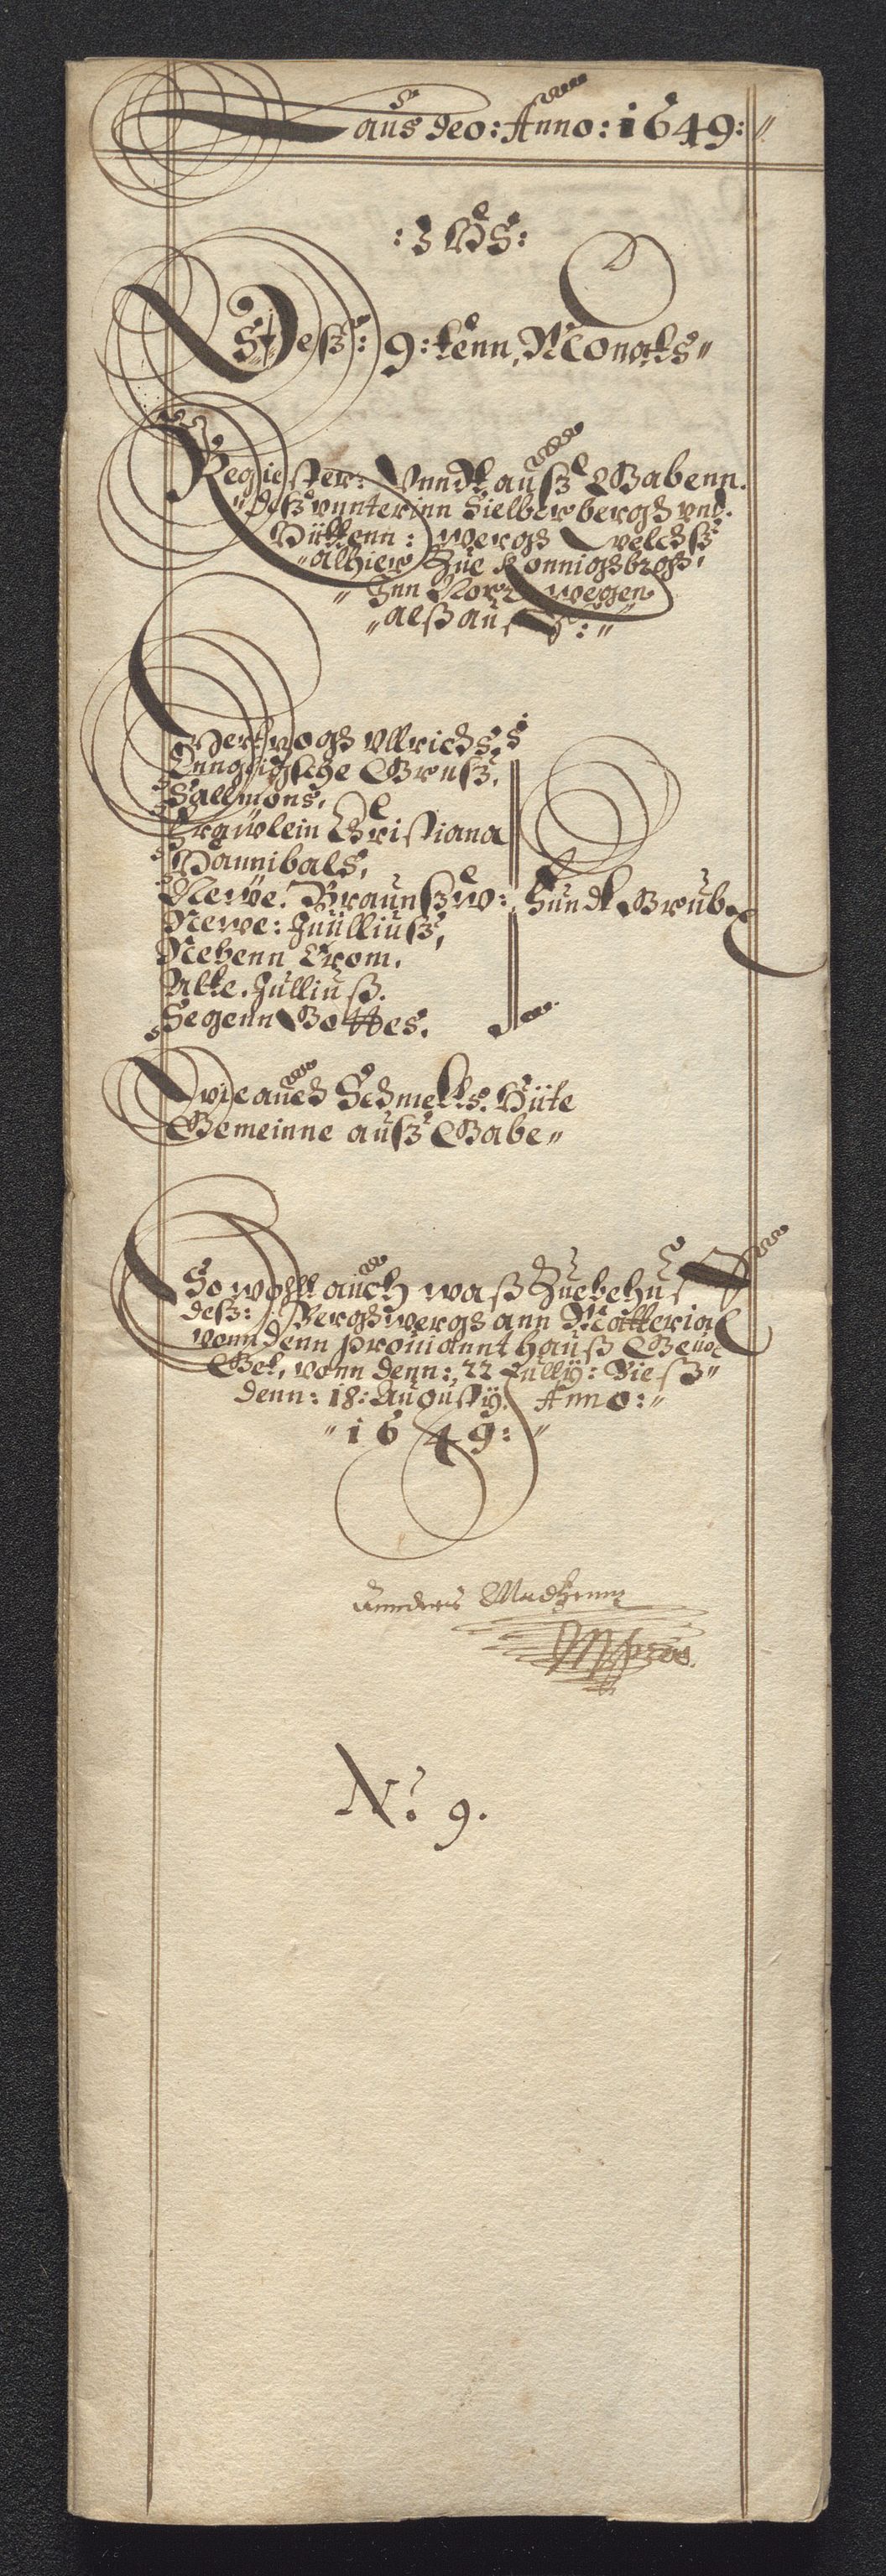 Laus deo: Anno: 1649:
: 3 HS:
Deß: 9: tenn, Monats
Regiester: Vnndt außGabenn.
deß vnnterinn Sielberbergs vnd.
Hüttenn: wergs welches
alhier Zue Konnigsbergs,
Inn Norwegen
alß auf:
Hertzogs Vllrichs,
Sallmons,
Fraüwlein Christiana
Hannibals,
Newe. Braunßw: Hundt Grube
Newe: Juülliuß,
Nebenn Trom,
Alte. Julliuß.
Segenn Gottes.
wie auch Schmeltz. Hüte
Gemeinne außGabe
So wohll auch waß Zuebehuf
deß: Bergwergs ann Matterial
vonn denn prouiannt hauß Geuol
Get, vonn denn: 22 Jullÿ: Bieß
denn: 18: Augustÿ. Anno:
1649:
Anders
N: 9.